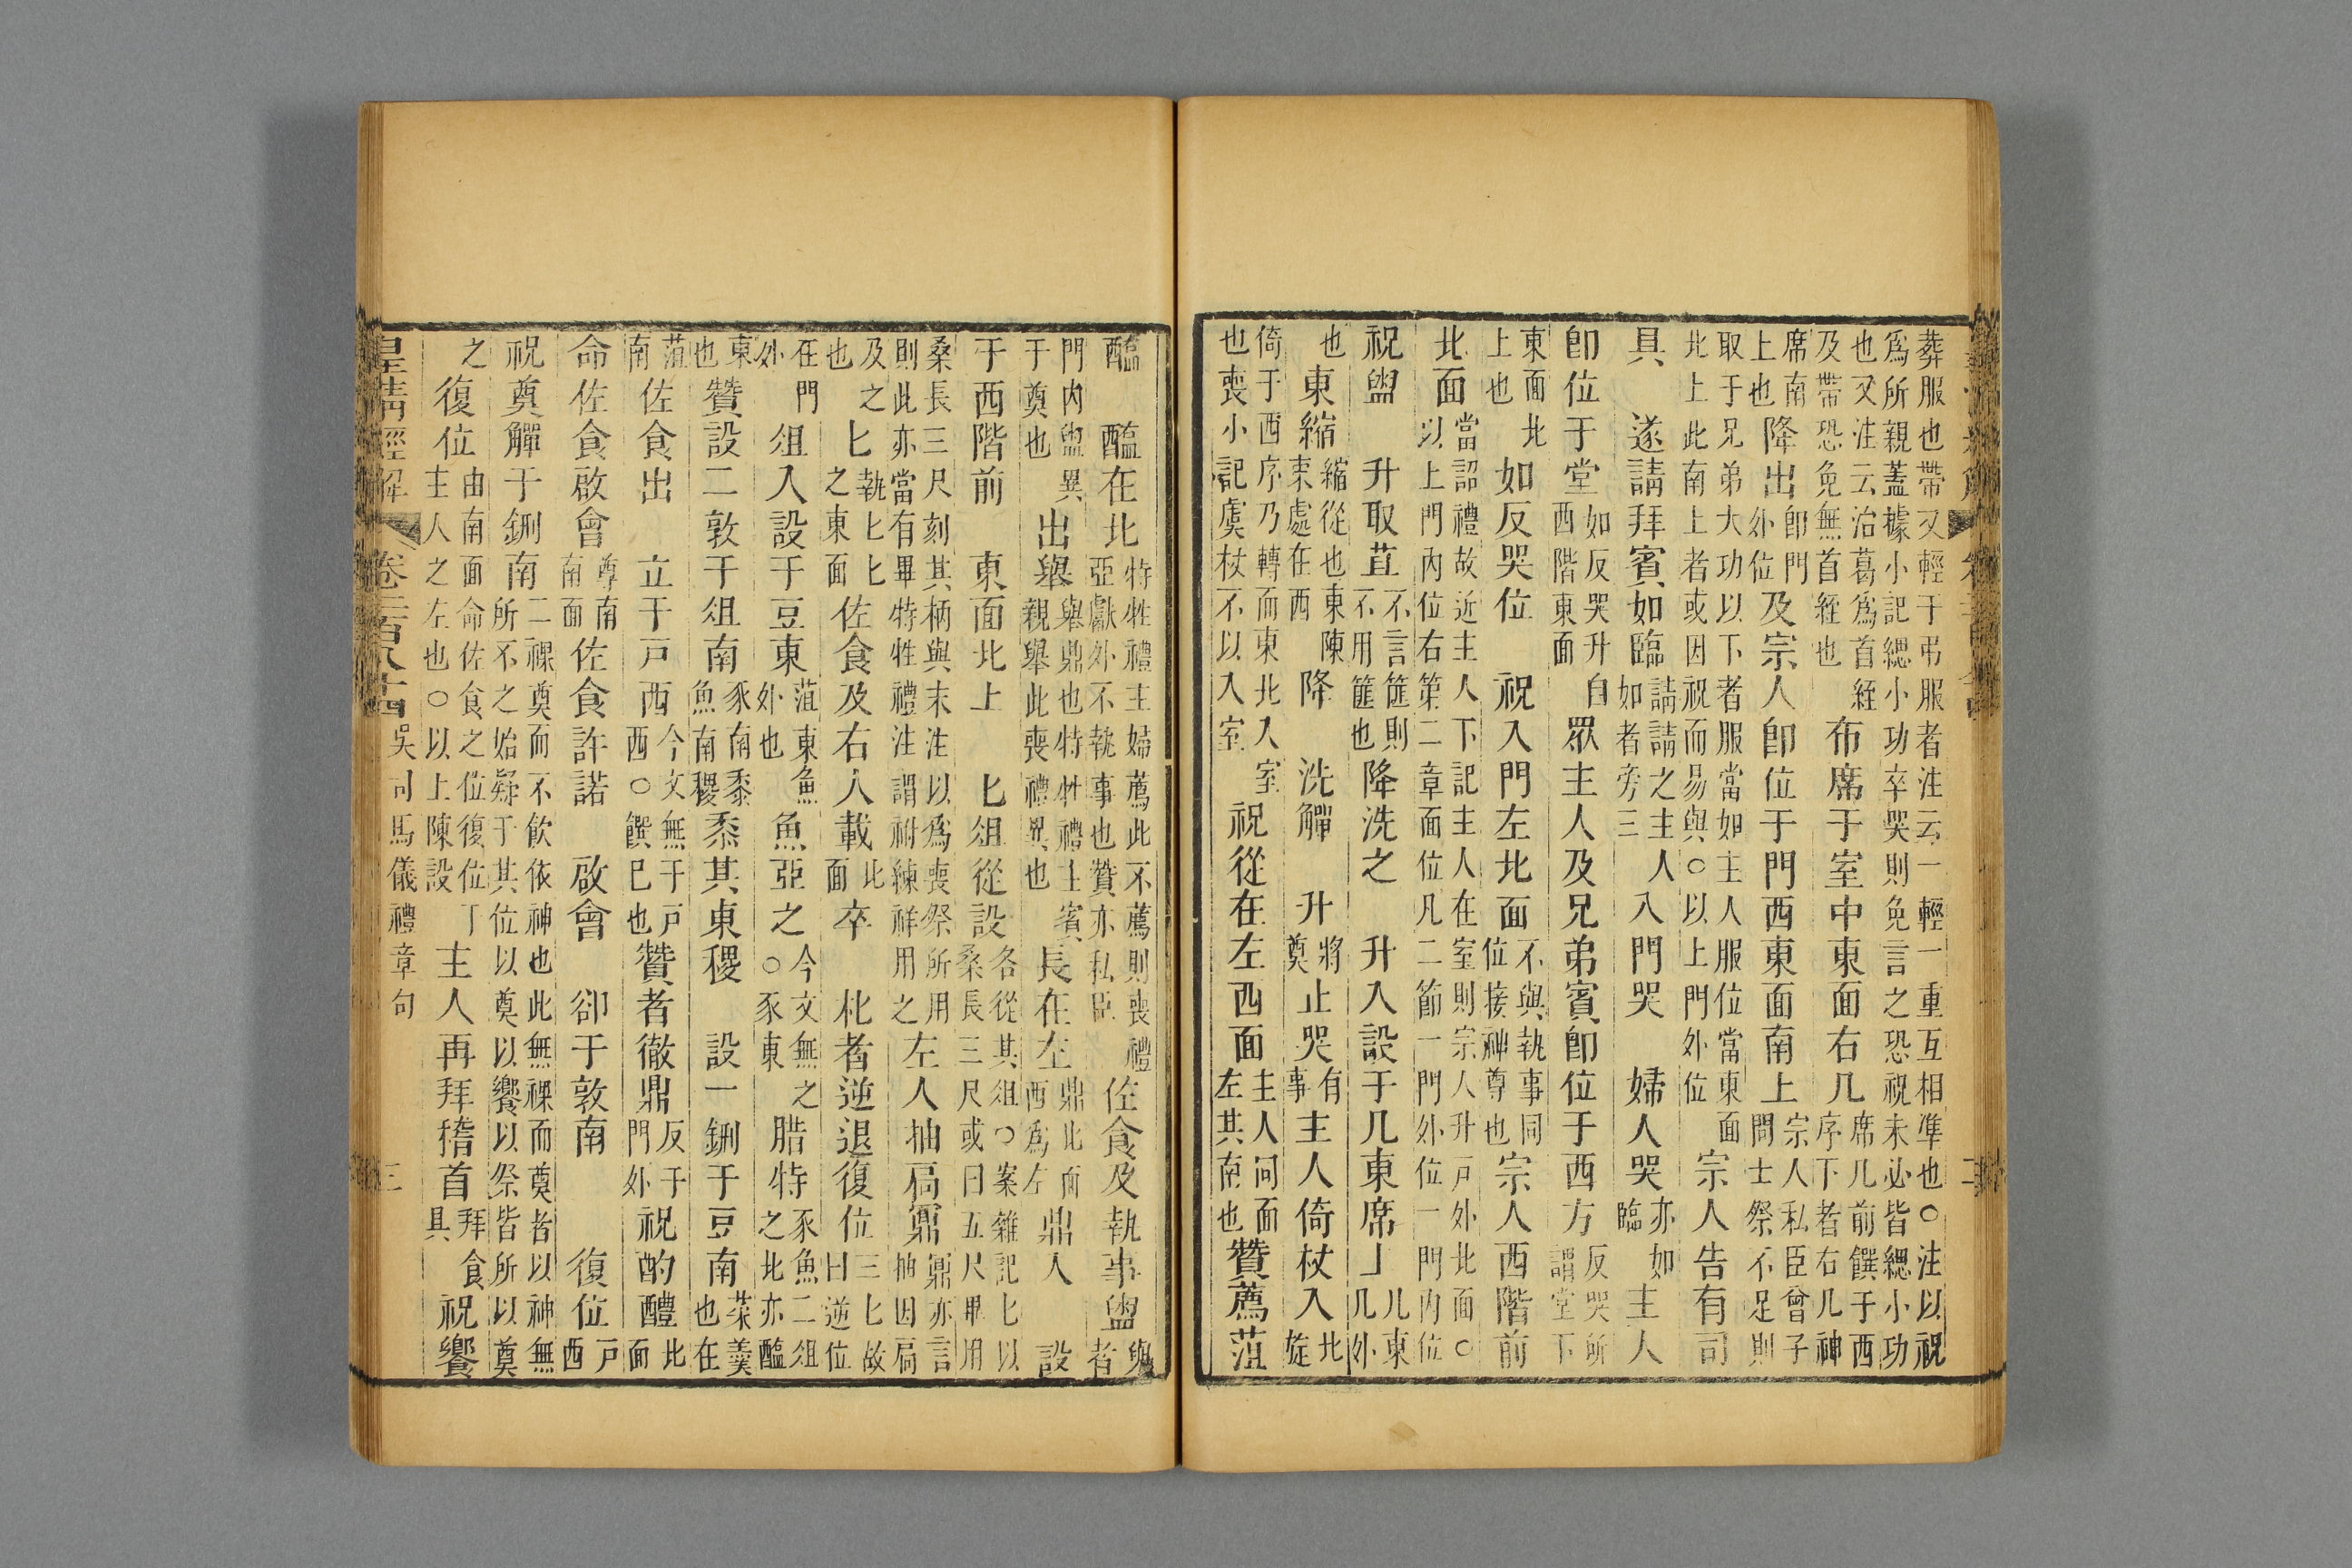 葬服也帶又輕于弔服者注云一輕一重互相準也○注以祝
為所親蓋據小記緦小功卒哭則免言之恐祝未必皆緦小功
也又注云治葛為首絰及帶恐免無首絰也布席于室中東面右几席几前饌于西序下者右几神
席南上也降出即門外位及宗人即位于門西東面南上宗人私臣曾子問士祭不足則
取于兄弟大功以下者服當如主人服位當東面北上此南上者或因祝而易與○以上門外位宗人告有司
具遂請拜賓如臨請請之主人如者旁三入門哭婦人哭亦如臨主人
即位于堂如反哭升自西階東面眾主人及兄弟賓即位于西方反哭所謂堂下
東面北上也如反哭位祝入門左北面不與執事同位接神尊也宗人西階前
北面當詔禮故近主人下記主人在室則宗人升戶外北面○以上門內位右第二章面位凡二節一門外位一門內位
祝盥升取苴不言篚則不用篚也降洗之升入設于几東席上几東几外
也東縮縮從也東陳束處在西降洗觶升將奠止哭有事主人倚杖入北旋
倚于西序乃轉而東北入室也喪小記虞杖不以入室祝從在左西面主人同面左其南也贊薦菹
醢醢在北特牲禮主婦薦此不薦則喪禮亞獻外不執事也贊亦私臣佐食及執事盥與者
門內盥異于奠也出舉舉鼎也特牲禮主賓親舉此喪禮異也長在左鼎北面西為左鼎入設
于西階前東面北上匕俎從設各從其俎○案雜記匕以桑長三尺或曰五尺畢用
桑長三尺刻其柄與末注以為喪祭所用則此亦當有畢特牲禮注謂祔練祥用之左人抽扃鼏鼏亦言抽因扃
及之也匕執匕匕之東面佐食及右人載此面卒朼者逆退復位三匕故曰逆位
在門外俎入設于豆東菹東魚外也魚亞之今文無之○豕東腊特豕魚二俎之北亦醢
東也贊設二敦于俎南豕南黍魚南稷黍其東稷設一鉶于豆南菜羹也在
菹南佐食出立于戶西今文無于戶西○饌已也贊者徹鼎反于門外祝酌醴北面
命佐食啟會尊南南面佐食許諾啟會卻于敦南復位戶西
祝奠觶于鉶南二祼奠而不飲依神也此無祼而奠者以神無所不之始疑于其位以奠以饗以祭皆所以奠
之復位由南面命佐食之位復位主人之左也○以上陳設主人再拜稽首拜食具祝饗
皇清經解 卷二百八十四 吳司馬儀禮章句 三